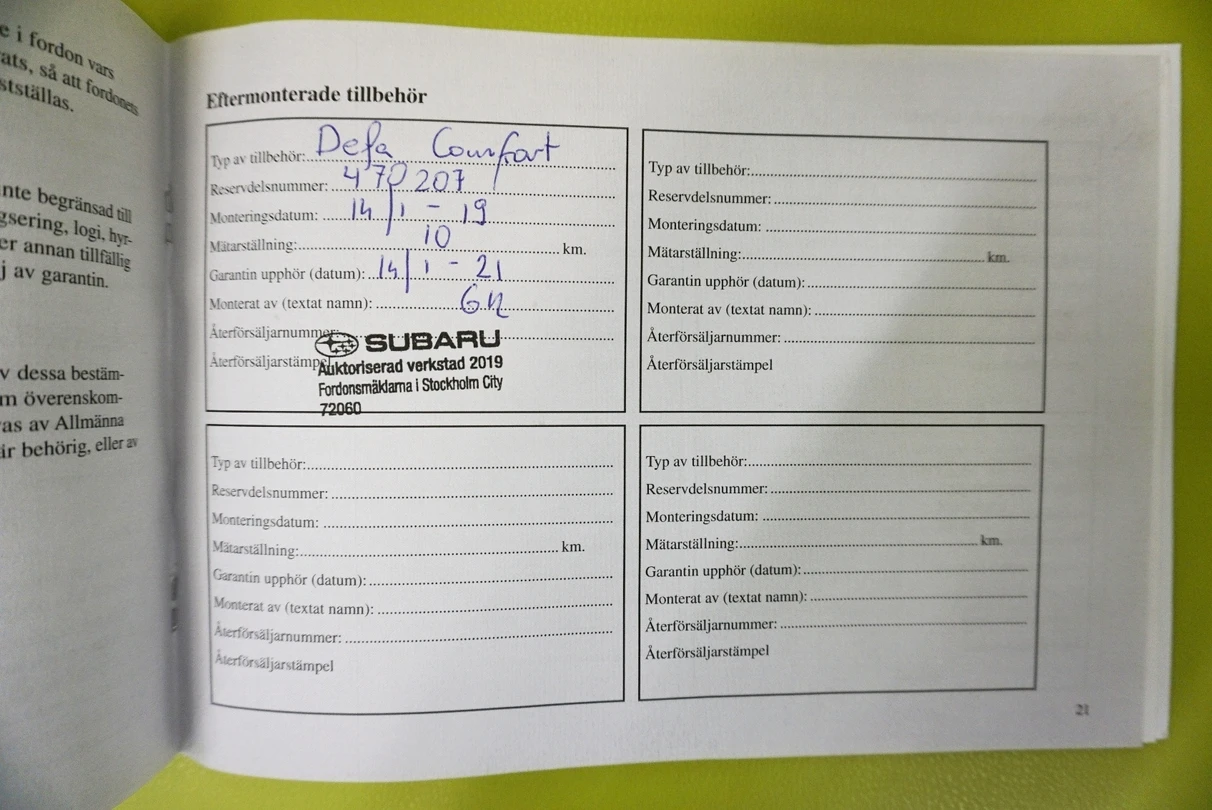 e i fordon vars
ats, så att fordonets
stställas.
nte begränsad till
gsering, logi, hyr-
er annan tillfällig
j av garantin.
v dessa bestäm-
m överenskom-
as av Allmänna
är behörig, eller av
Eftermonterade tillbehör
Typ av tillbehör: Defa Comfort
Reservdelsnummer: 470207
Monteringsdatum: 14/1 - 19
Mätarställning: 10 km.
Garantin upphör (datum): 14/1 - 21
Monterat av (textat namn):
Återförsäljarnummer:
SUBARU
Återförsäljarstämpel
Auktoriserad verkstad 2019
Fordonsmäklarna i Stockholm City
72060
Typ av tillbehör:
Reservdelsnummer:
Monteringsdatum:
Mätarställning: km.
Garantin upphör (datum):
Monterat av (textat namn):
Återförsäljarnummer:
Återförsäljarstämpel
Typ av tillbehör:
Reservdelsnummer:
Monteringsdatum:
Mätarställning: km.
Garantin upphör (datum):
Monterat av (textat namn):
Återförsäljarnummer:
Återförsäljarstämpel
Typ av tillbehör:
Reservdelsnummer:
Monteringsdatum:
Mätarställning: km.
Garantin upphör (datum):
Monterat av (textat namn):
Återförsäljarnummer:
Återförsäljarstämpel
21